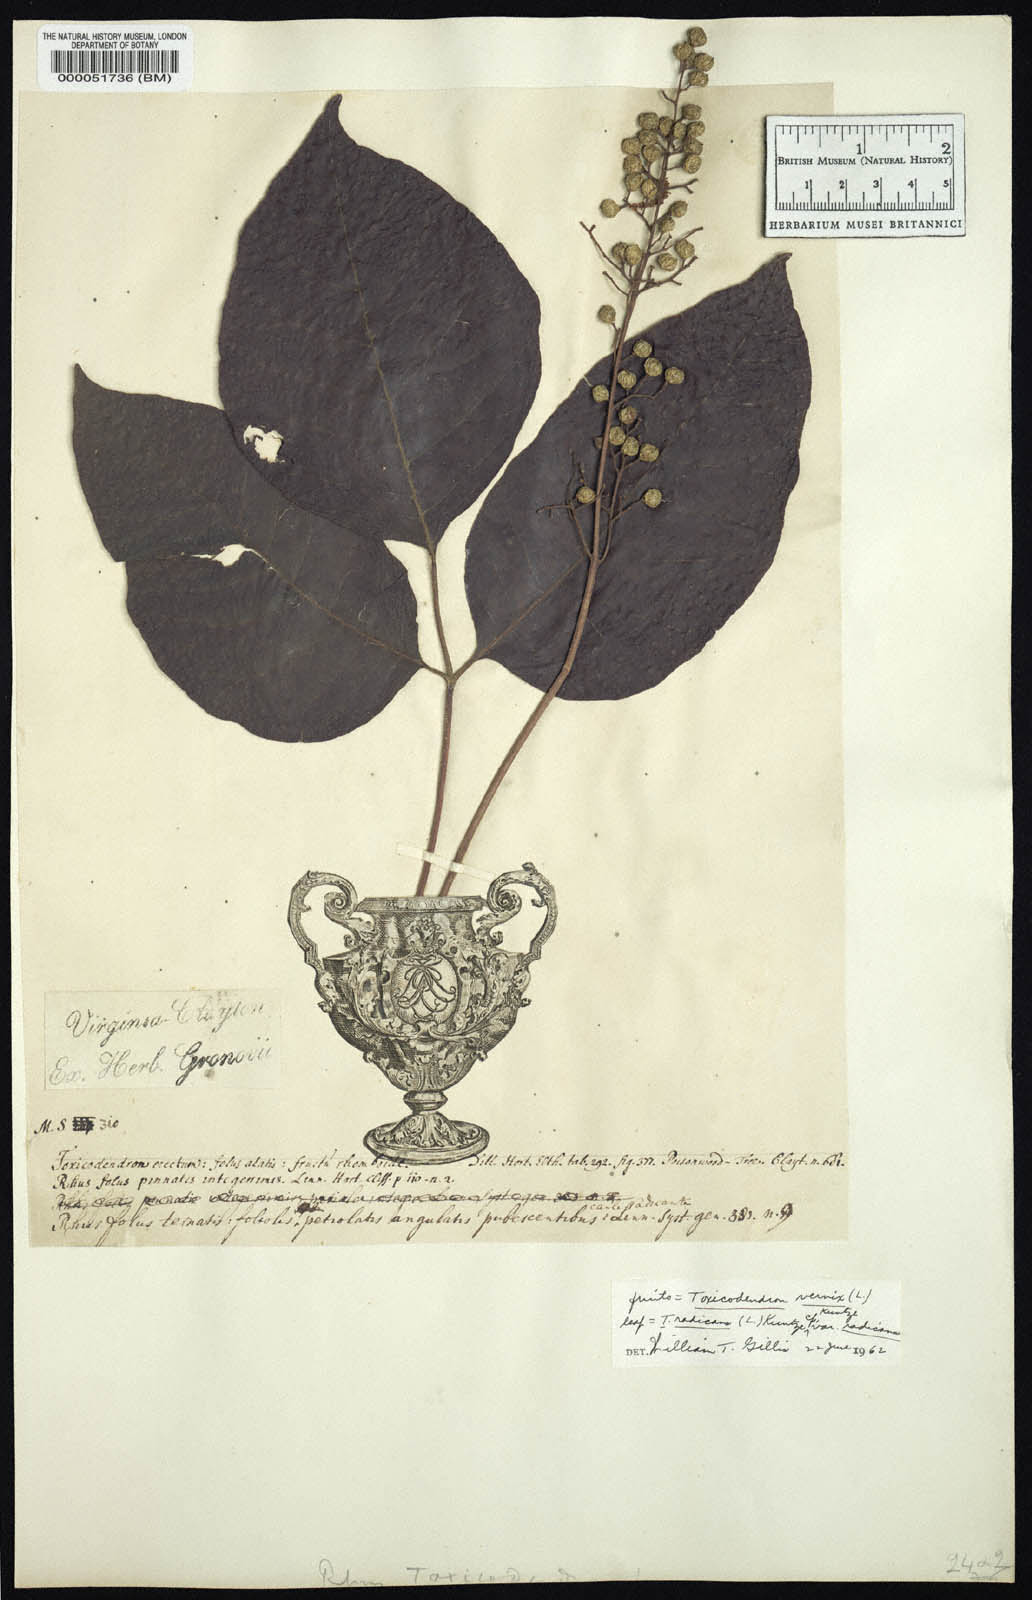 THE NATURAL HISTORY MUSEUM, LONDON
DEPARTMENT OF BOTANY
000051736 (BM)
1 2
BRITISH MUSEUM (NATURAL HISTORY)
1 2 3 4 5
HERBARIUM MUSEI BRITANNICI
Virginia Clayton
Ex. Herb. Gronovii
M. S 310
Toxicodendron erectum: folus alatis: fructu rhomboide. Dill. Hort. Elth. tab. 292. fig. 377. Poisonwood Clayt. n.
Rhus folus pinnatis integerrimis. Linn. Hort. Cliff. p 110. n. 2.
caule radicante
Rhus folus ternatis: foliolis petiolatis angulatis pubescentibus: Linn. Syst. gen. n.
fruits = Toxicodendron vernix (L.) Kuntze
leaf = T. radicans (L.) Kuntze cf. var. radicans
DET. William T. Gillis 22 June 1962
Rhus